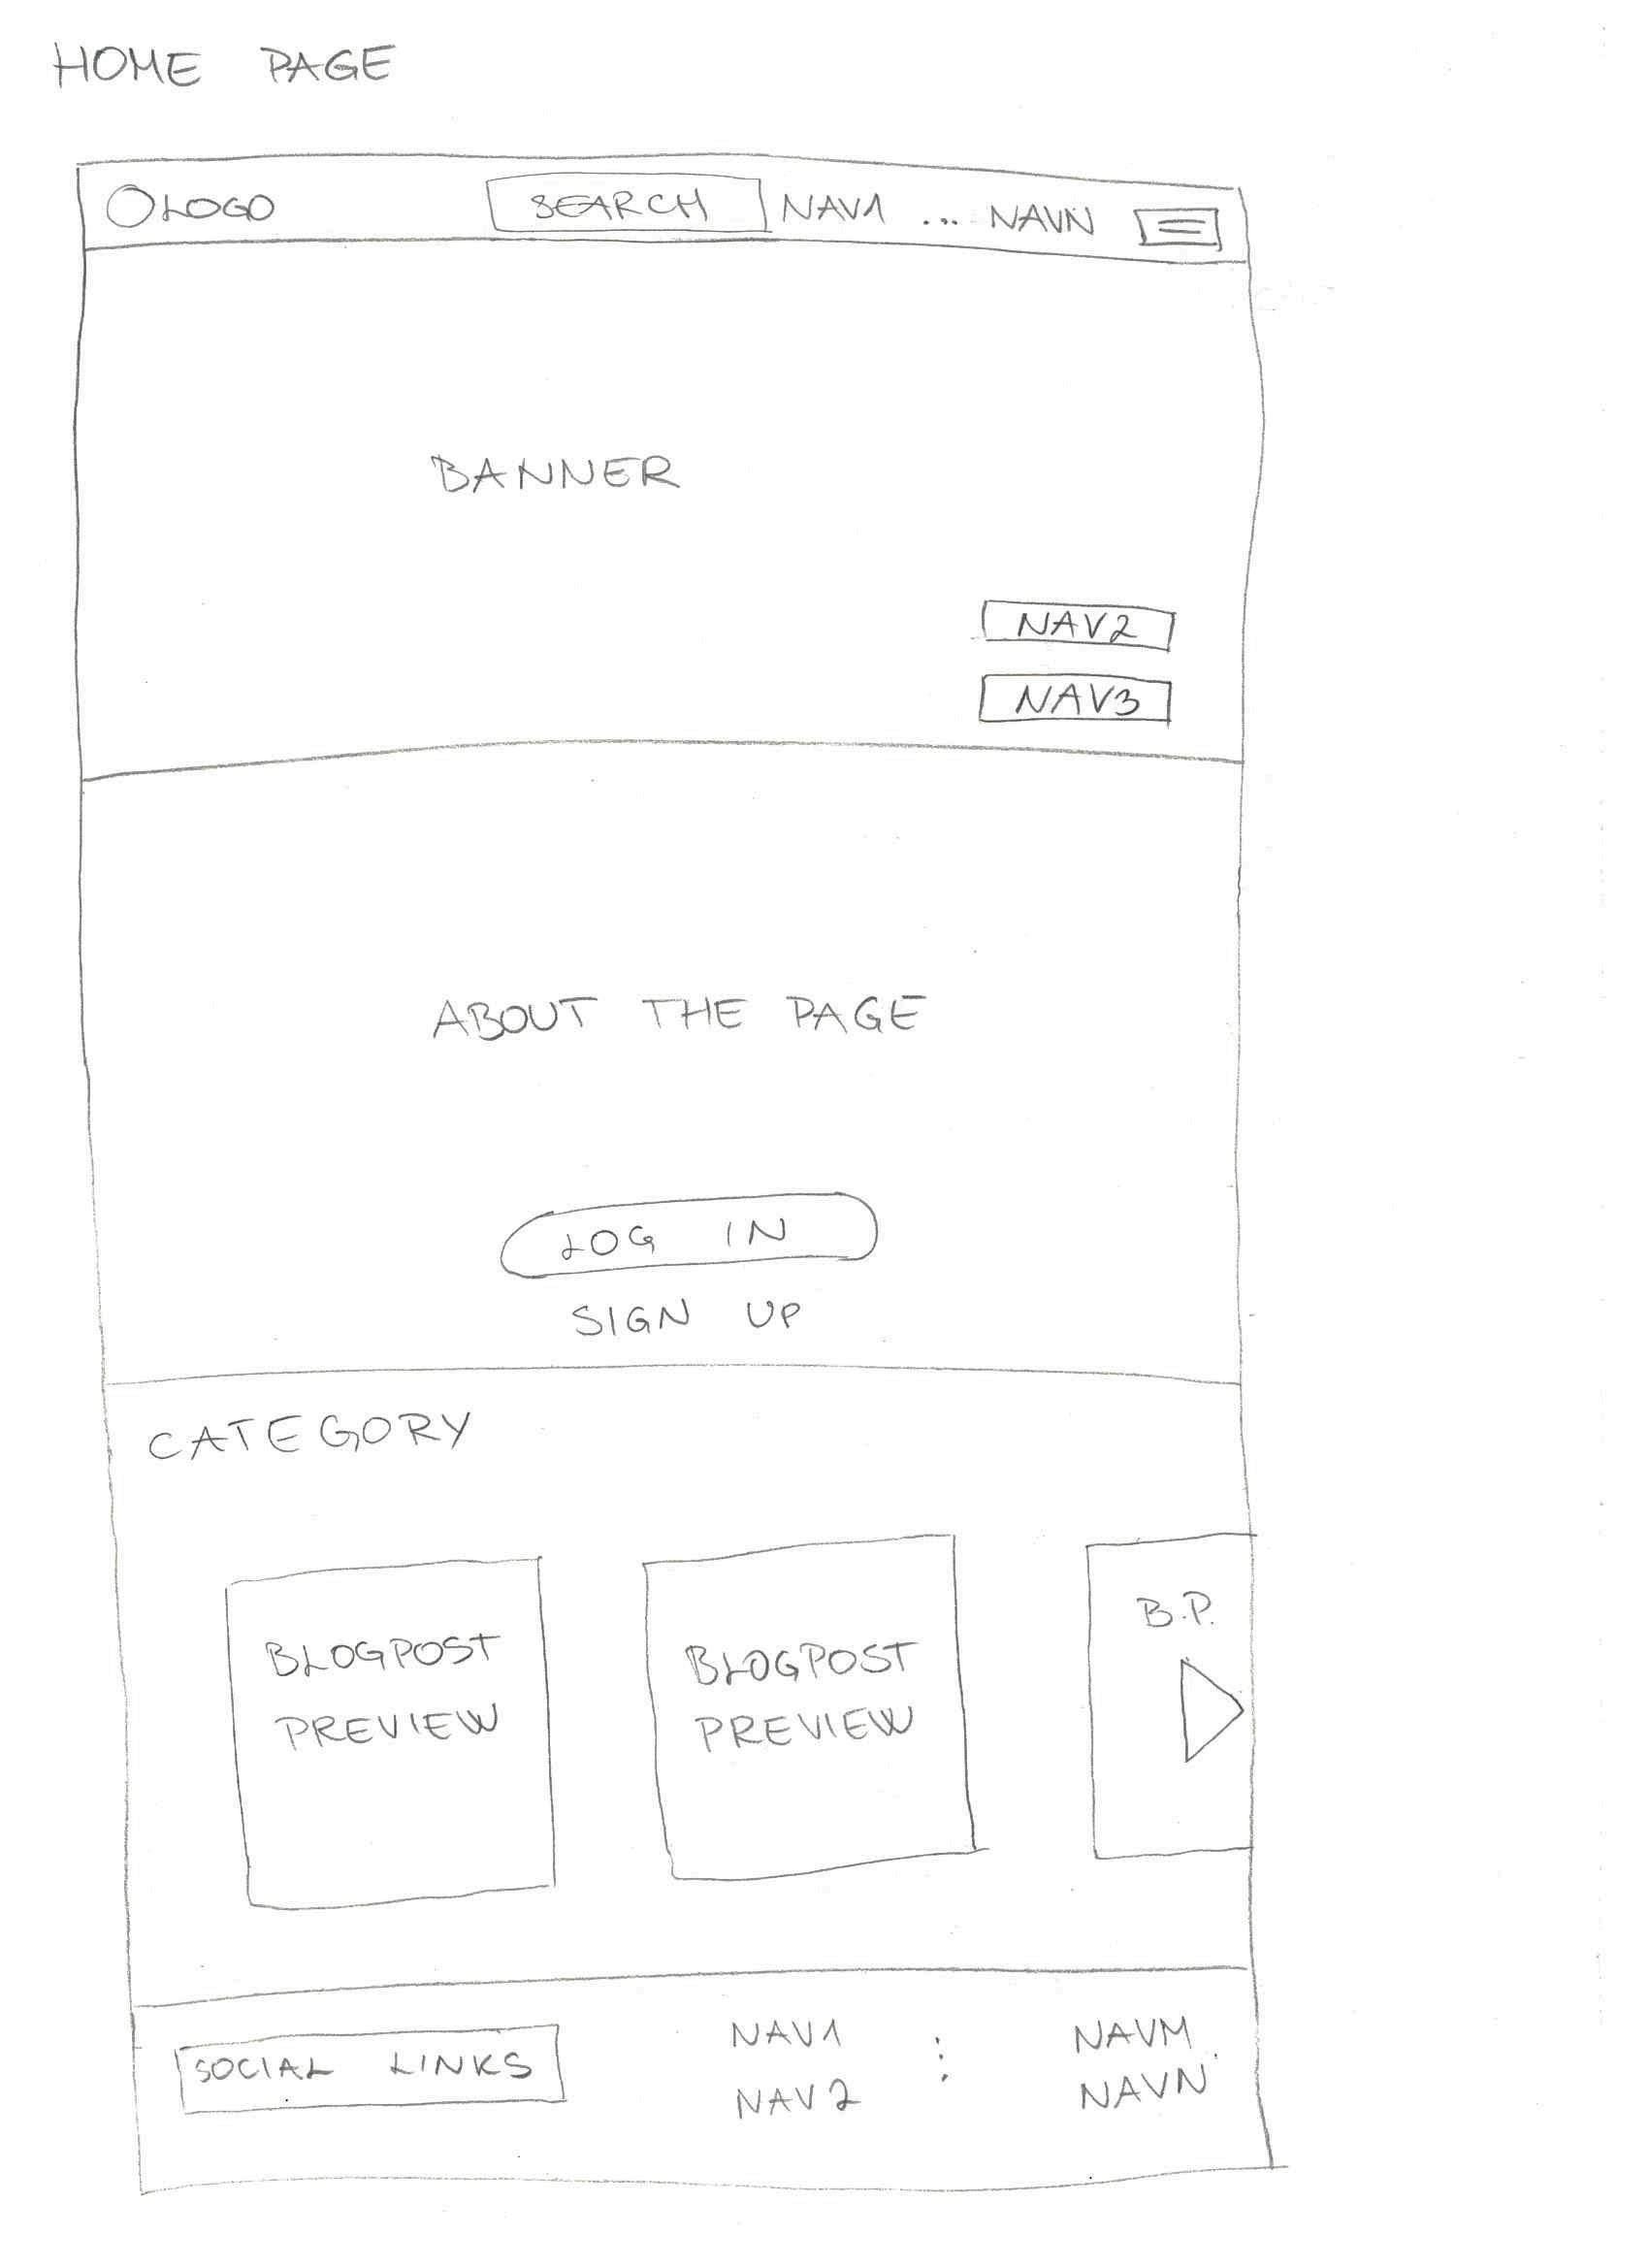 HOME PAGE
LOGO SEARCH NAV1 ... NAVN
BANNER
NAV2
NAV3
ABOUT THE PAGE
LOG IN
SIGN UP
CATEGORY
BLOGPOST
PREVIEW
BLOGPOST
PREVIEW
B.P.
SOCIAL LINKS
NAV1
NAV2
NAVM
NAVN